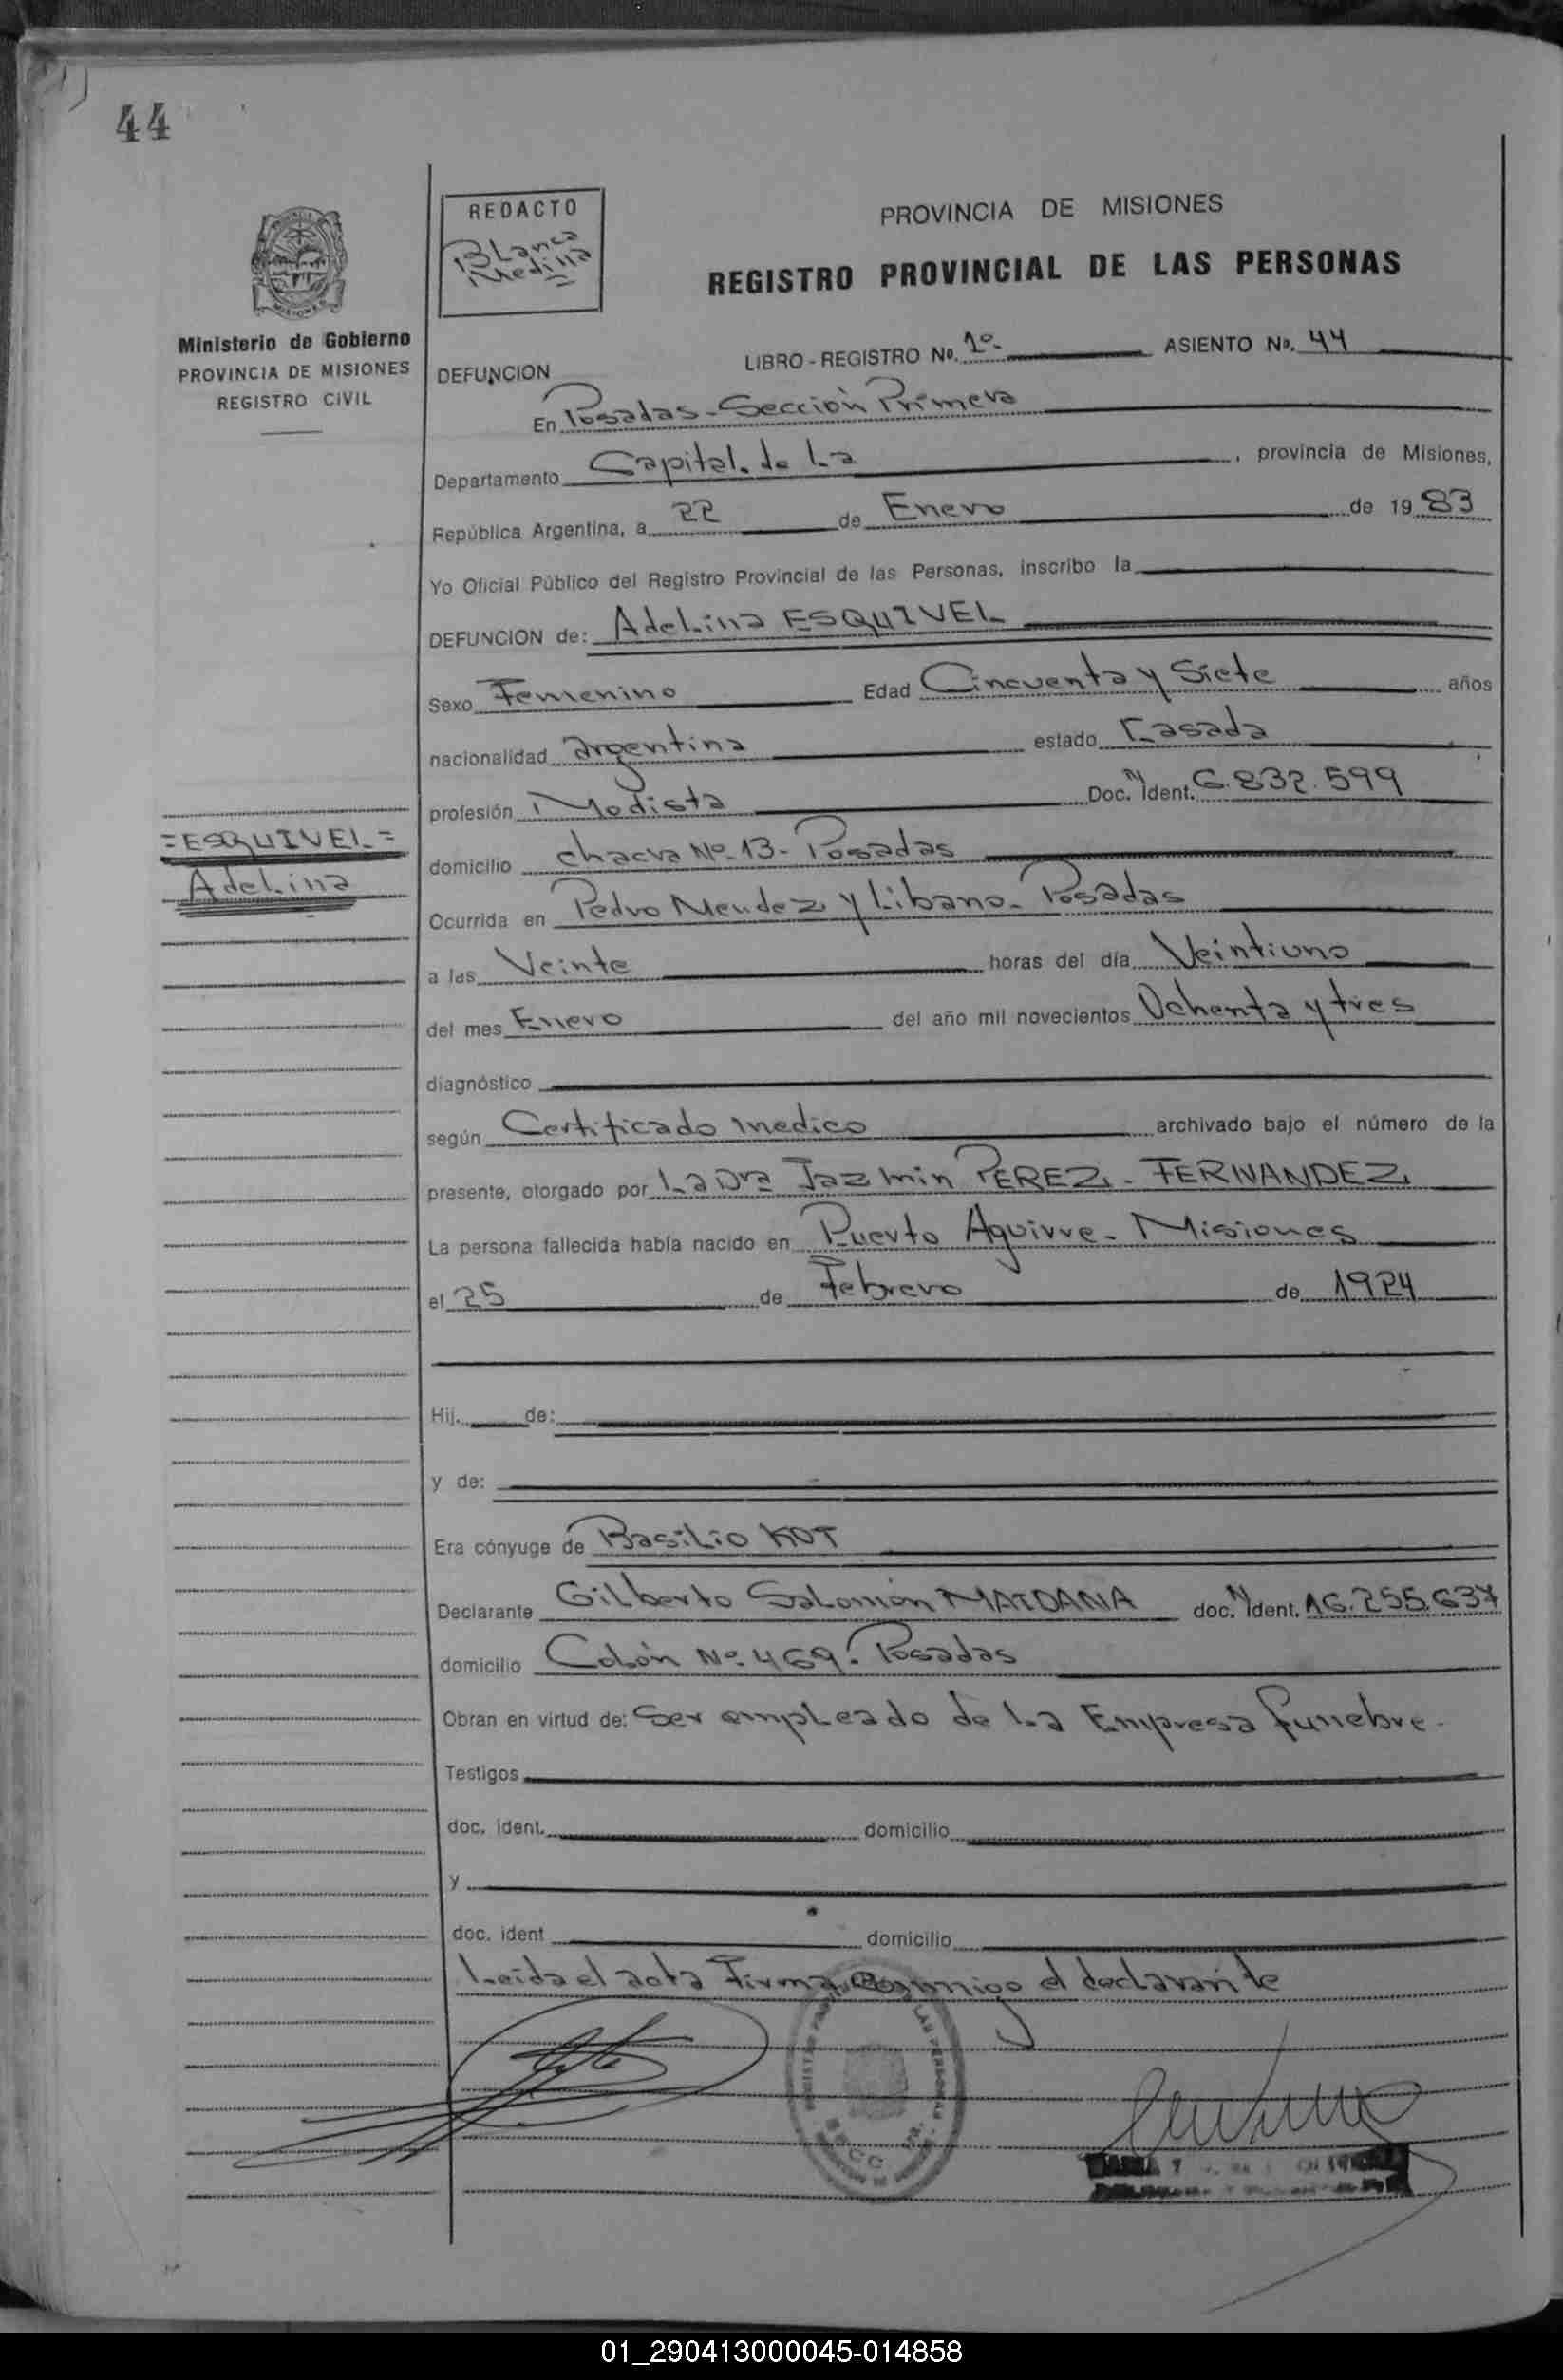 44
REDACTO
Blanca
Medina
PROVINCIA DE MISIONES
REGISTRO PROVINCIAL DE LAS PERSONAS
Ministerio de Gobierno
PROVINCIA DE MISIONES
REGISTRO CIVIL
LIBRO - REGISTRO No. 1º- ASIENTO No. 44
DEFUNCION
En Posadas - Sección Primera
Departamento Capital. de La, provincia de Misiones,
República Argentina, a 22 de Enero de 1983
Yo Oficial Público del Registro Provincial de las Personas, inscribo la
DEFUNCION de: Adelina ESQUIVEL
Sexo Femenino Edad Cincuenta y Siete años
nacionalidad argentina estado Casada
profesión Modista Doc. N Ident. 6.832.599
=ESQUIVEL=
Adelina
domicilio chacra Nº 13 - Posadas
Ocurrida en Pedro Mendez y Libano - Posadas
a las Veinte horas del día Veintiuno
del mes Enero del año mil novecientos Ochenta y tres
diagnóstico
según Certificado medico archivado bajo el número de la
presente, otorgado por La Dra Jazmin PEREZ - FERNANDEZ
La persona fallecida había nacido en Puerto Aguirre - Misiones
el 25 de Febrero de 1924
Hij. de:
y de:
Era cónyuge de Basilio KOT
Declarante Gilberto Salomón MAIDANA doc. N Ident. 16.255.637
domicilio Colón Nº 469. Posadas
Obran en virtud de: Ser empleado de La Empresa funebre.
Testigos
doc. ident. domicilio
y
doc. ident domicilio
Leida el acta Firma Conmigo el declarante
01_290413000045-014858